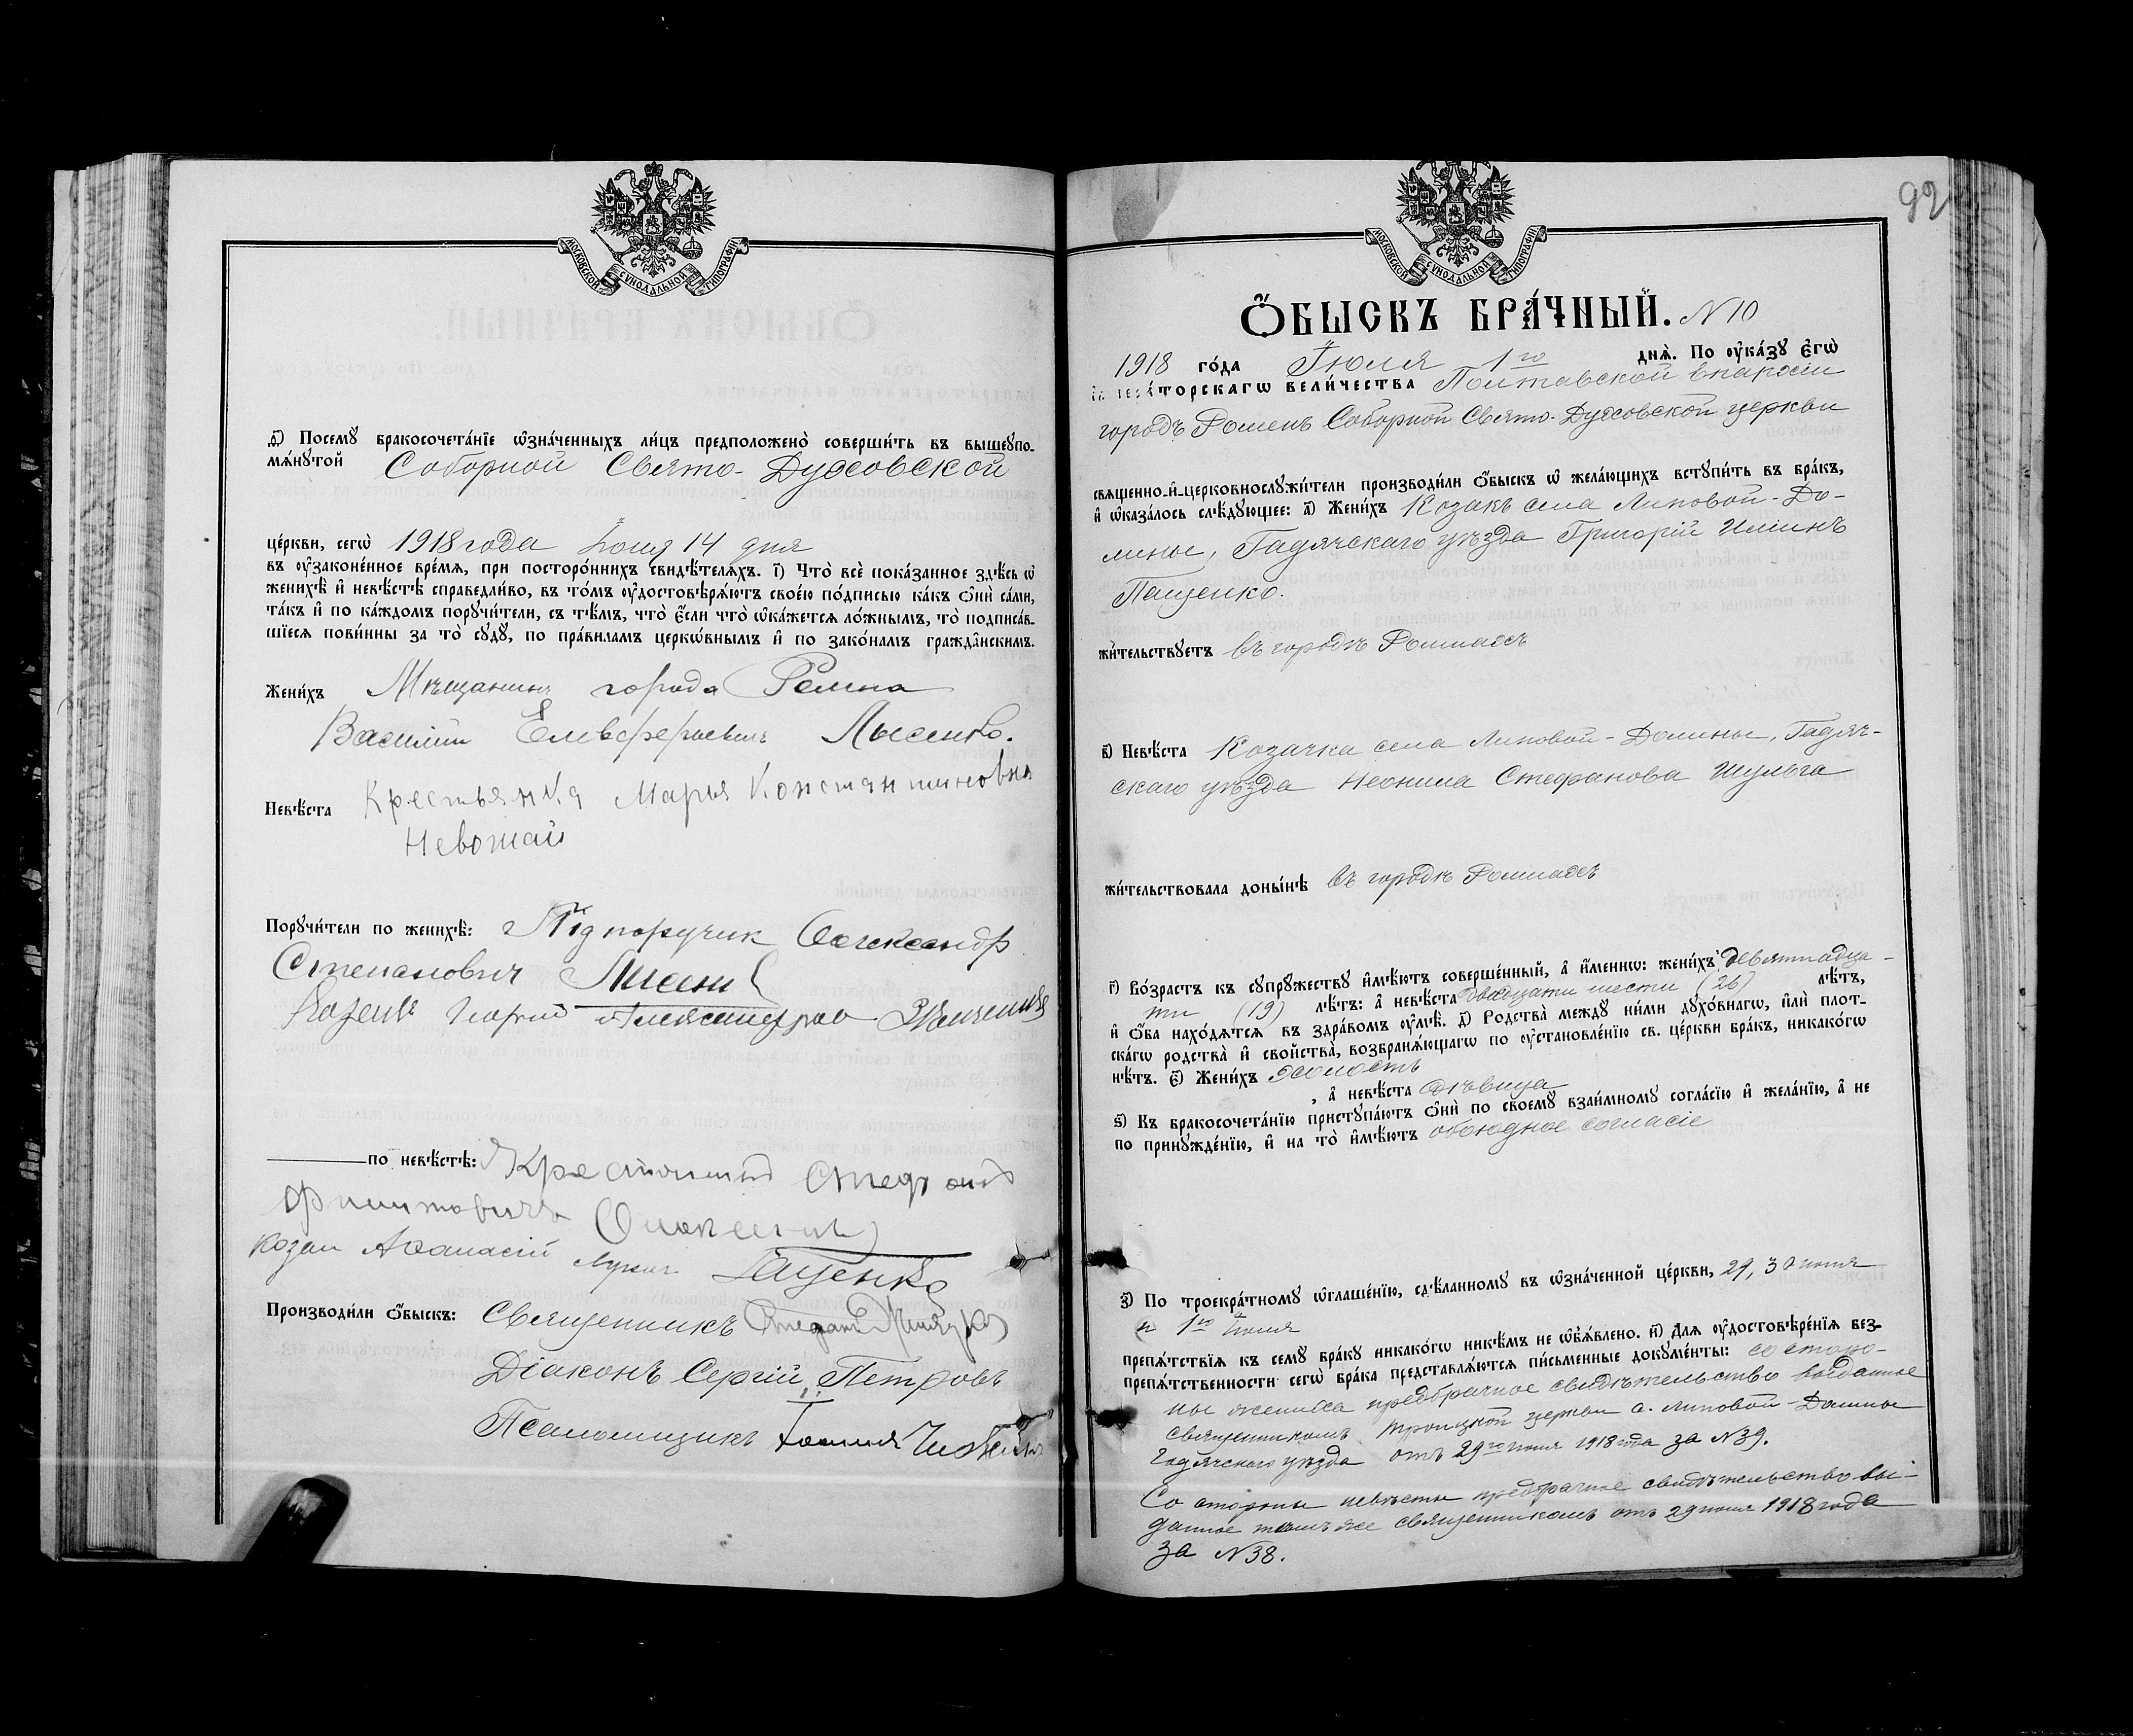 МОСКОВСКОЙ СѴНОДАЛЬНОЙ ТИПОГРАФІИ
д҃) Посемꙋ бракосочета́нїе ѡ҆зна́ченныхъ ли́цъ предположено̀ соверши́ть въ вышеꙋпо-
мѧ́нꙋтой Соборной Свято-Духовской
це́ркви, сегѡ̀ 1918 года Іюня 14 дня
въ ᲂу҆законе́нное вре́мѧ, при посторо́ннихъ свидѣ́телѧхъ. і҃) Что̀ всѐ пока́занное здѣ́сь ѡ҆
женихѣ̀ и҆ невѣ́стѣ справедли́во, въ то́мъ ᲂу҆достовѣрѧ́ютъ свое́ю по́дписью ка́къ ѻ҆нѝ са́ми,
та́къ и҆ по ка́ждомъ порꙋчи́тели, съ тѣ́мъ, что̀ є҆́сли что̀ ѡ҆ка́жетсѧ ло́жнымъ, то̀ подписа́в-
шїесѧ пови́нны за то̀ сꙋдꙋ̀, по пра́виламъ церкѡ́внымъ и҆ по зако́намъ гражда̑нскимъ.
Жени́хъ Мѣщанинъ города Ромна
Василій Елевферьевичъ Лысенко.
Невѣ́ста Крестьянка Марья Константиновна
Невошай
Порꙋчи́тели по женихѣ̀: Підпоручик Олександр
Степанович Лисен
Козакъ Георгій Александров
по невѣ́стѣ: Крестьянинъ Стефанъ
Филиповичъ
козак Афанасій Лукич Гащенко
Производи́ли ѻ҆́быскъ: Священникъ Стефанъ
Діаконъ Сергій Петровъ
Псаломщикъ Іоаннъ
92
МОСКОВСКОЙ СѴНОДАЛЬНОЙ ТИПОГРАФІИ
Ѻ҆́БЫСКЪ БРА́ЧНЫЙ. N 10
1918 го́да Іюля 1го днѧ̀. По ᲂу҆ка́зꙋ є҆гѡ̀
и҆мпера́торскагѡ вели́чества Полтавской епархіи
городъ Роменъ Соборной Свято-Духовской церкви
свѧще́нно-и҆-церковнослꙋжи́тели производи́ли ѻ҆́быскъ ѡ҆ жела́ющихъ встꙋпи́ть въ бра́къ,
и҆ ѡ҆каза́лось слѣ́дꙋющее: а҃) Жени́хъ Козакъ села Липовой-До-
лины, Гадячскаго уѣзда Григорій Иліинъ
Пащенко.
жи́тельствꙋетъ въ городѣ Ромнахъ
в҃) Невѣ́ста Козачка села Липовой-Долины, Гадяч-
скаго уѣзда Неонила Стефанова Шульга
жи́тельствовала доны́нѣ въ городѣ Ромнахъ
г҃) Во́зрастъ къ сꙋпрꙋ́жествꙋ и҆мѣ́ютъ соверше́нный, а҆ и҆́меннѡ: жени́хъ девятнадца-
ти (19) лѣ́тъ: а҆ невѣ́ста двадцати шести (26) лѣ́тъ,
и҆ ѻ҆́ба нахо́дѧтсѧ въ здра́вомъ ᲂу҆мѣ̀. д҃) Родства̀ междꙋ̀ ни́ми дꙋхо́внагѡ, и҆лѝ плот-
ска́гѡ родства̀ и҆ свойства̀, возбранѧ́ющагѡ по ᲂу҆становле́нїю св. це́ркви бра́къ, никако́гѡ
нѣ́тъ. є҃) Жени́хъ холостъ
, а҆ невѣ́ста дѣвица
ѕ҃) Къ бракосочета́нїю пристꙋпа́ютъ ѻ҆нѝ по своемꙋ̀ взаи́мномꙋ согла́сїю и҆ жела́нїю, а҆ не
по принꙋжде́нїю, и҆ на то̀ и҆мѣ́ютъ обоюдное согласіе
з҃) По троекра́тномꙋ ѡ҆глаше́нїю, сдѣ́ланномꙋ въ ѡ҆зна́ченной це́ркви, 29, 30 июня
и 1го июля
препѧ́тствїѧ къ семꙋ̀ бра́кꙋ никако́гѡ никѣ́мъ не ѡ҆б̾ѧ́влено. и҃) Длѧ̀ ᲂу҆достовѣре́нїѧ без-
препѧ́тственности сегѡ̀ бра́ка представлѧ́ютсѧ пи́сьменные докꙋме́нты: со сторо-
ны жениха предбрачное свидѣтельство выданное
священникомъ Троицкой церкви с. Липовой-Долины
Гадячскаго уѣзда отъ 29го июня 1918 года за N 39.
Со стороны невѣсты предбрачное свидѣтельство вы-
данное тѣмъ же священникомъ отъ 29 июня 1918 года
за N 38.